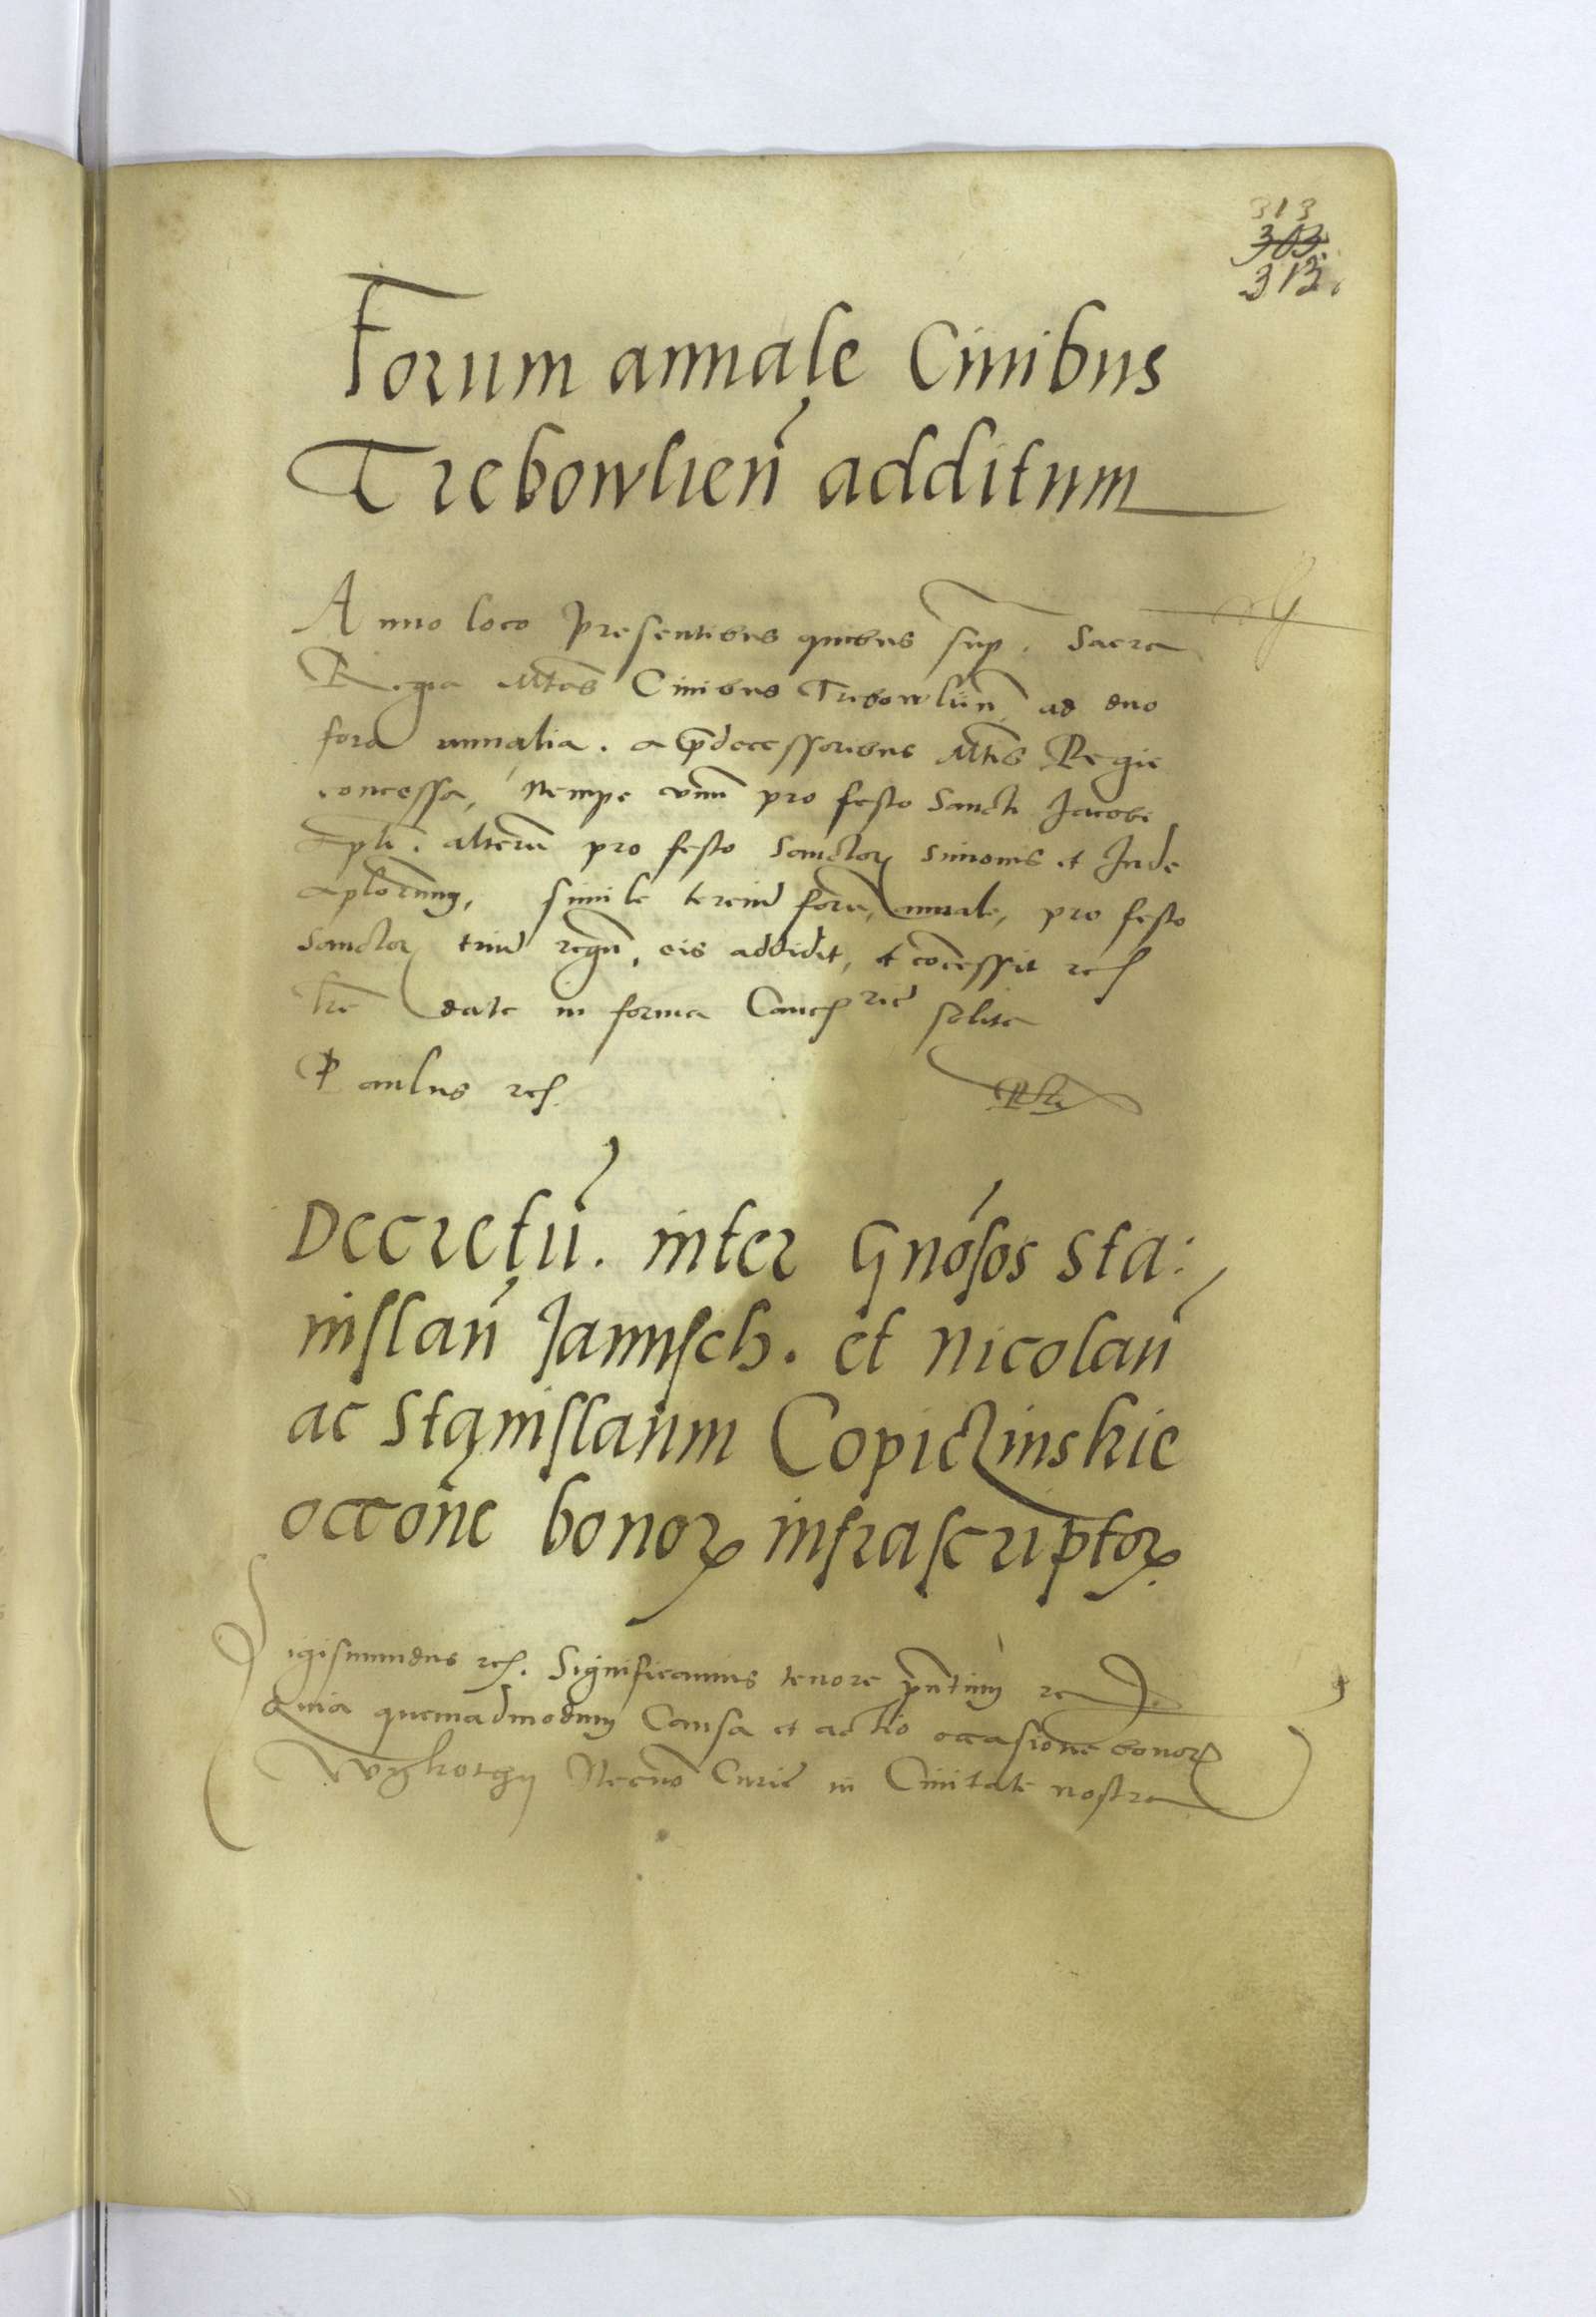 313
303.
313.
Forum annale Ciuibus
Trebowlien̄ additum
Anno loco presentibus quibus sup. Sacra
Regia Mtas Ciuibus Trebowlien̄ ad duo
fora annalia. a p̄decessoribus Mtis Regie
concessa, Nempe vnū pro festo Sancti Jacobi
Apli. alterū pro festo Sanctoꝝ Simonis et Jude
aplorum, simile terciū forū, annale, pro festo
Sanctoꝝ triū regū, eis addidit, et cōcessit etc
lr̄e date in forma Canc̄rie solita
Paulus etc.
Decretū. inter Gnósos Sta:
nislaū Janusch. et Nicolaū
ac Stanislaum Copiczinskie
occōne bonoꝝ infrascriptoꝝ
Sigismundus etc. Significamus tenore pn̄tium
Quia quemadmodum Causa et actio occasione bonoꝝ
Necnō Curie in Ciuitate nostra